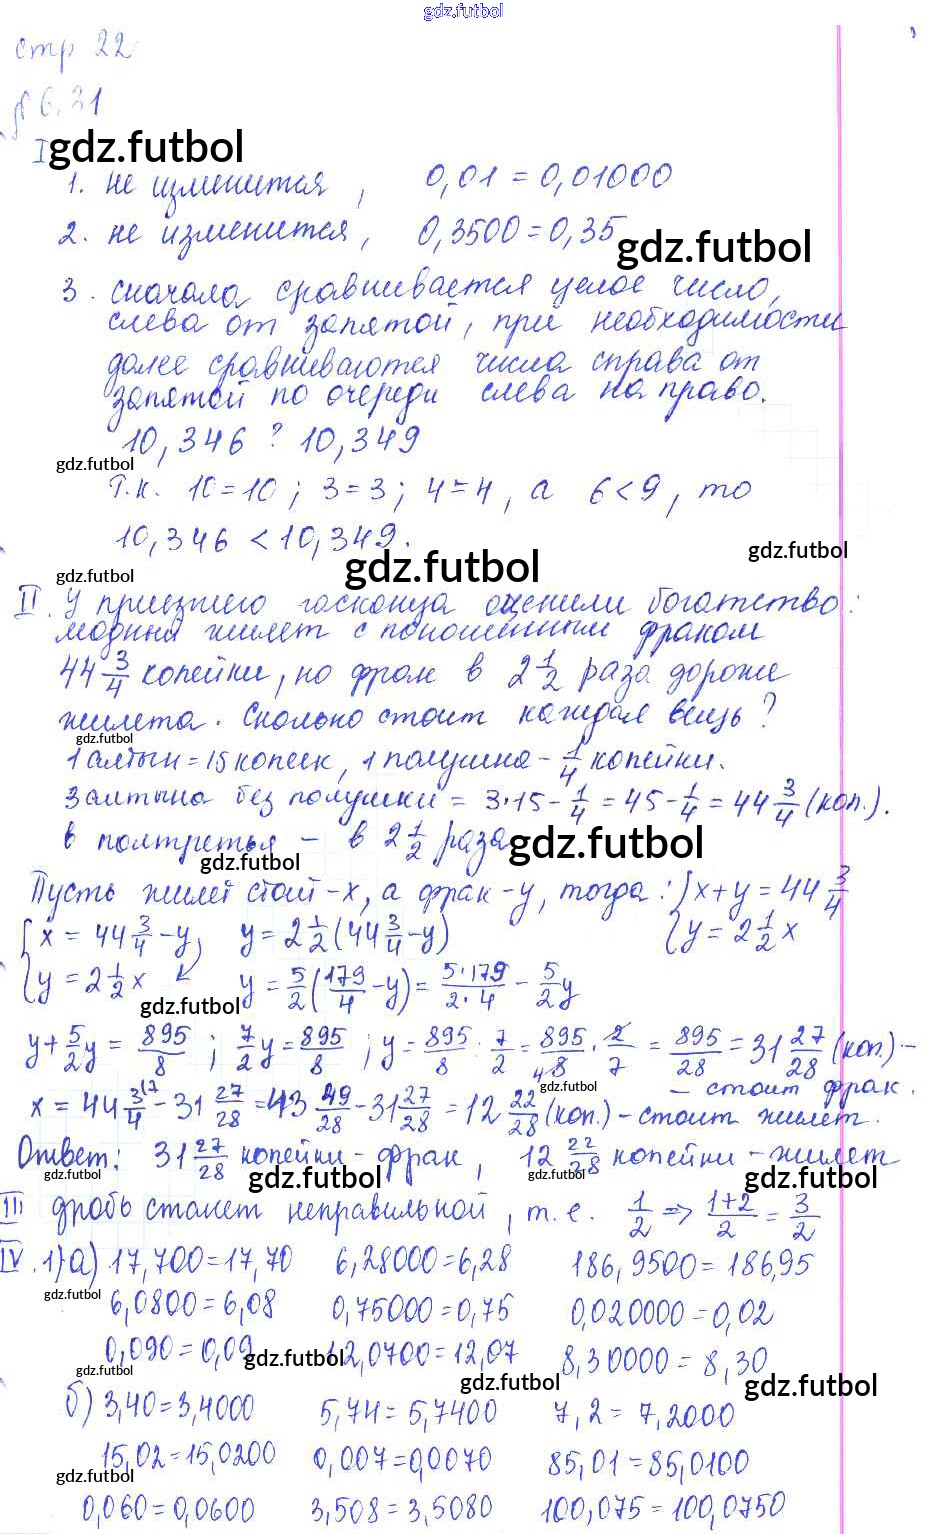 gdz.futbol
стр 22
№ 6.31
I gdz.futbol
1. не изменится, 0,01 = 0,01000
2. не изменится, 0,3500 = 0,35
gdz.futbol
3. сначала сравнивается целое число,
слева от запятой, при необходимости
далее сравниваются числа справа от
запятой по очереди слева на право.
10,346 ? 10,349
gdz.futbol
Т.к. 10 = 10; 3 = 3; 4 = 4, а 6 < 9, то
10,346 < 10,349.
gdz.futbol
gdz.futbol
gdz.futbol
II. У приезжего гасконца оценили богатство:
модный жилет с поношенным фраком
44 3/4 копейки, но фрак в 2 1/2 раза дороже
жилета. Сколько стоит каждая вещь?
gdz.futbol
1 алтын = 15 копеек, 1 полушка - 1/4 копейки.
3 алтына без полушки = 3·15 - 1/4 = 45 - 1/4 = 44 3/4 (коп.).
в полтретья - в 2 1/2 раза gdz.futbol
gdz.futbol
Пусть жилет стоит - x, а фрак - y, тогда: { x + y = 44 3/4
{ x = 44 3/4 - y, y = 2 1/2 (44 3/4 - y) y = 2 1/2 x
{ y = 2 1/2 x y = 5/2 (179/4 - y) = 5·179/2·4 - 5/2 y
gdz.futbol
y + 5/2 y = 895/8 ; 7/2 y = 895/8 ; y = 895/8 : 7/2 = 895/8 · 2/7 = 895/28 = 31 27/28 (коп.) -
gdz.futbol
- стоит фрак.
x = 44 3/4 - 31 27/28 = 43 49/28 - 31 27/28 = 12 22/28 (коп.) - стоит жилет.
Ответ: 31 27/28 копейки - фрак, 12 22/28 копейки - жилет
gdz.futbol gdz.futbol gdz.futbol gdz.futbol
III дробь станет неправильной, т.е. 1/2 => 1+2/2 = 3/2
IV. 1) а) 17,700 = 17,70 6,28000 = 6,28 186,9500 = 186,95
gdz.futbol
6,0800 = 6,08 0,75000 = 0,75 0,020000 = 0,02
0,090 = 0,09 12,0700 = 12,07 8,30000 = 8,30
gdz.futbol gdz.futbol gdz.futbol gdz.futbol
б) 3,40 = 3,4000 5,74 = 5,7400 7,2 = 7,2000
15,02 = 15,0200 0,007 = 0,0070 85,01 = 85,0100
gdz.futbol
0,060 = 0,0600 3,508 = 3,5080 100,075 = 100,0750